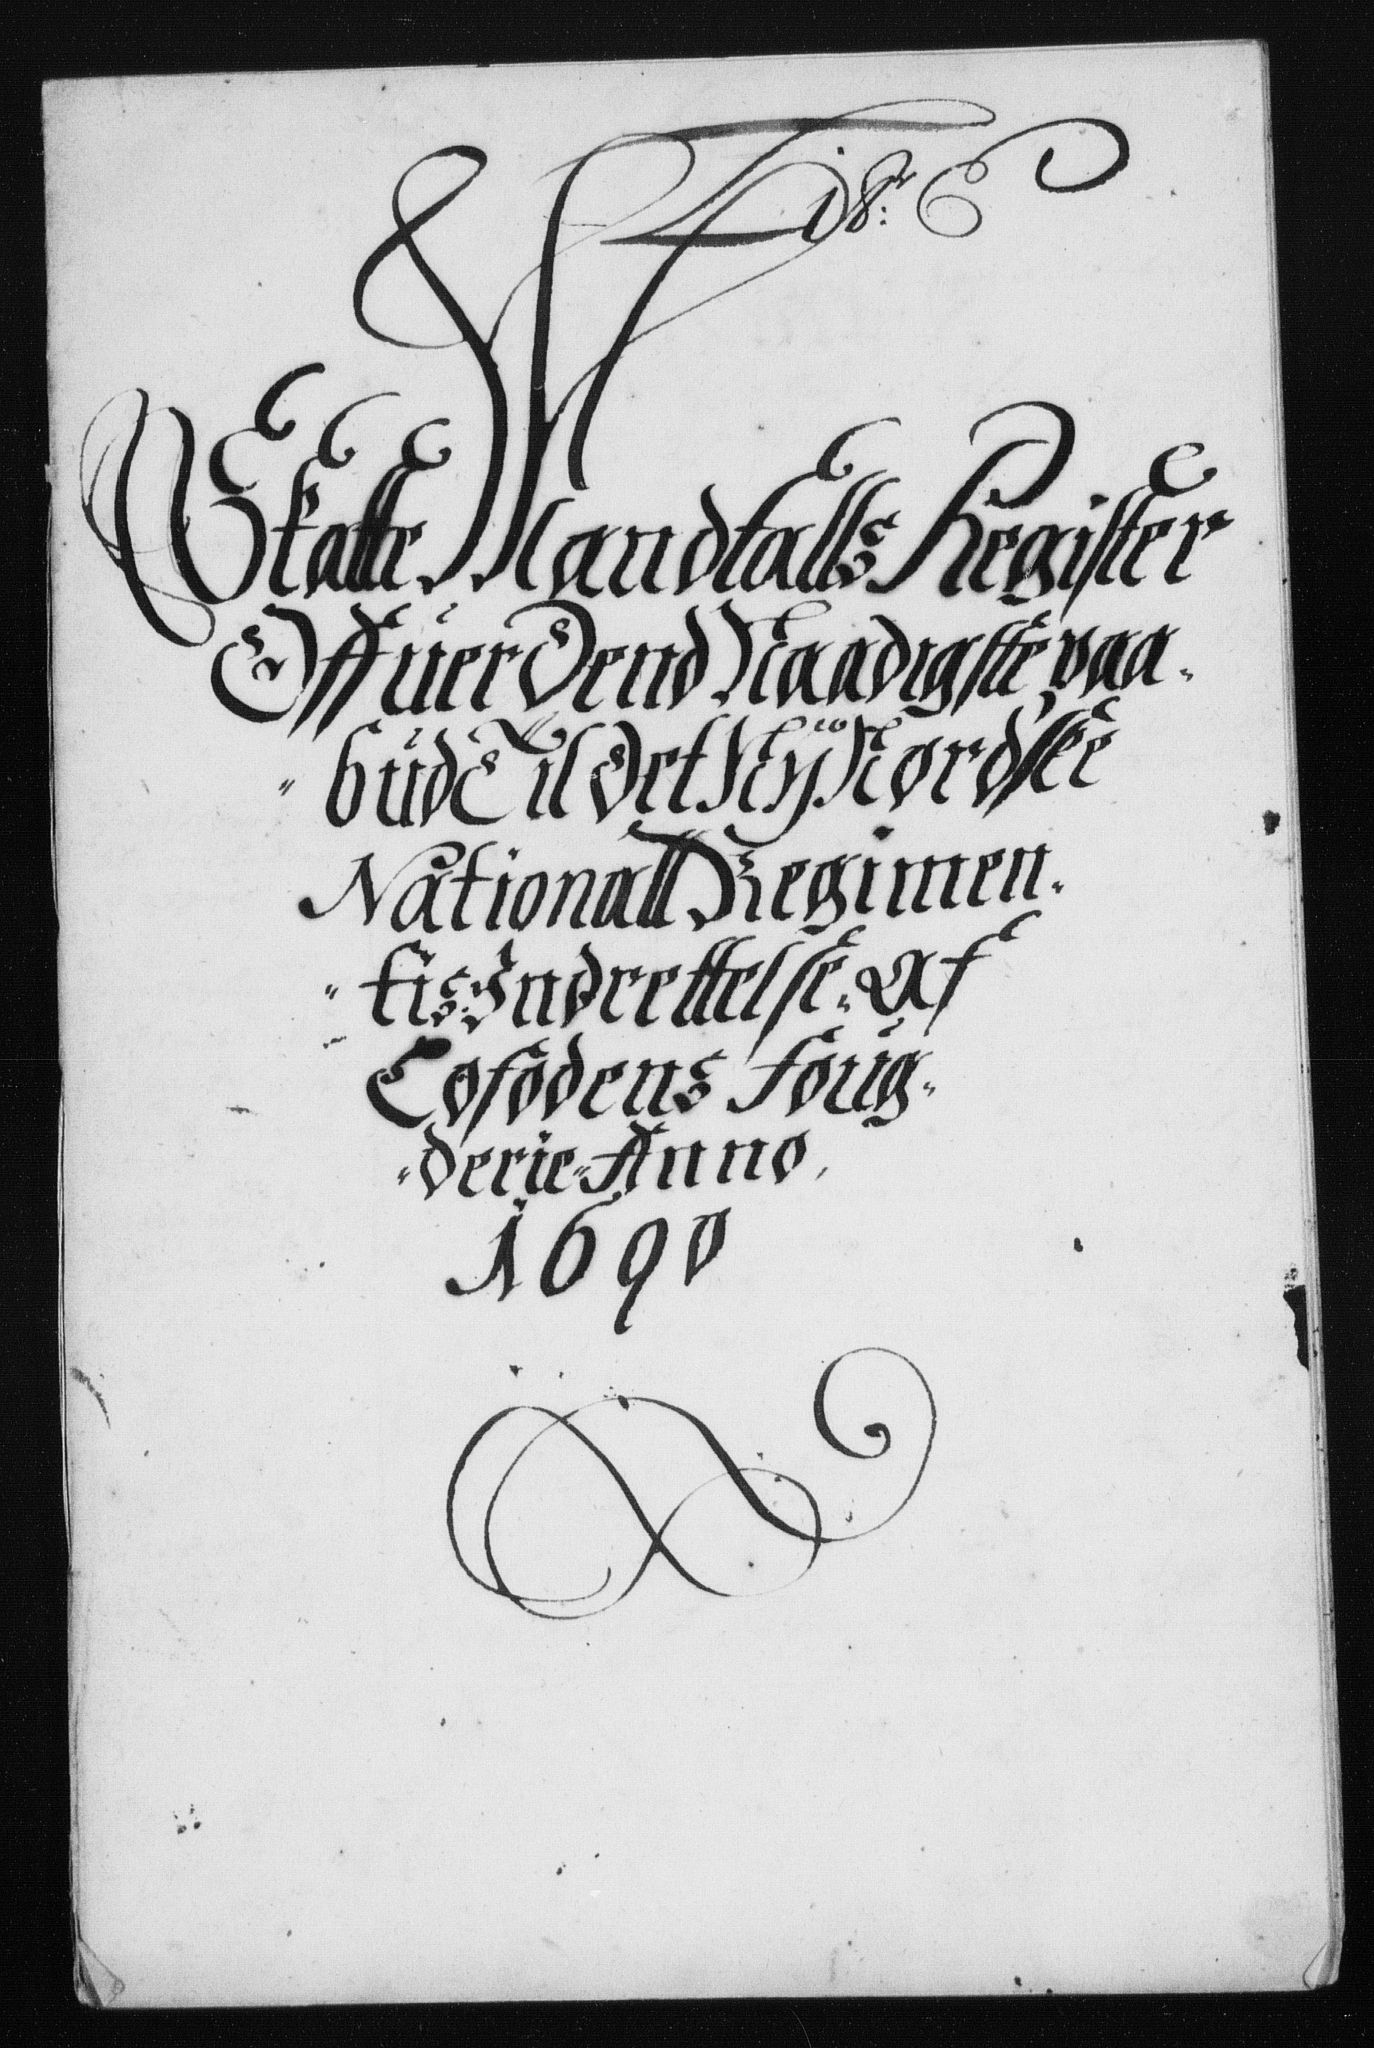 18:
Skatte Mandtalls Register
Offuer Dend Naadigste paa-
"bud Til Det Ny Nordske
Nationall Regimen-
"tis Indrettelse. Af
Lofodens Foug-
"derie Anno
1690